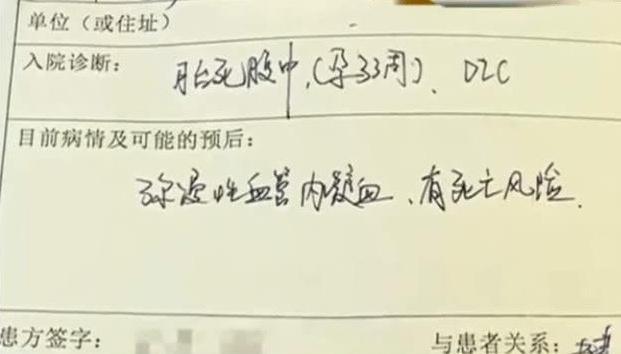 单位（或住址）
入院诊断： 胎死腹中，(孕33周)、DIC
目前病情及可能的预后：
弥漫性血管内凝血、有死亡风险.
患方签字：
与患者关系：